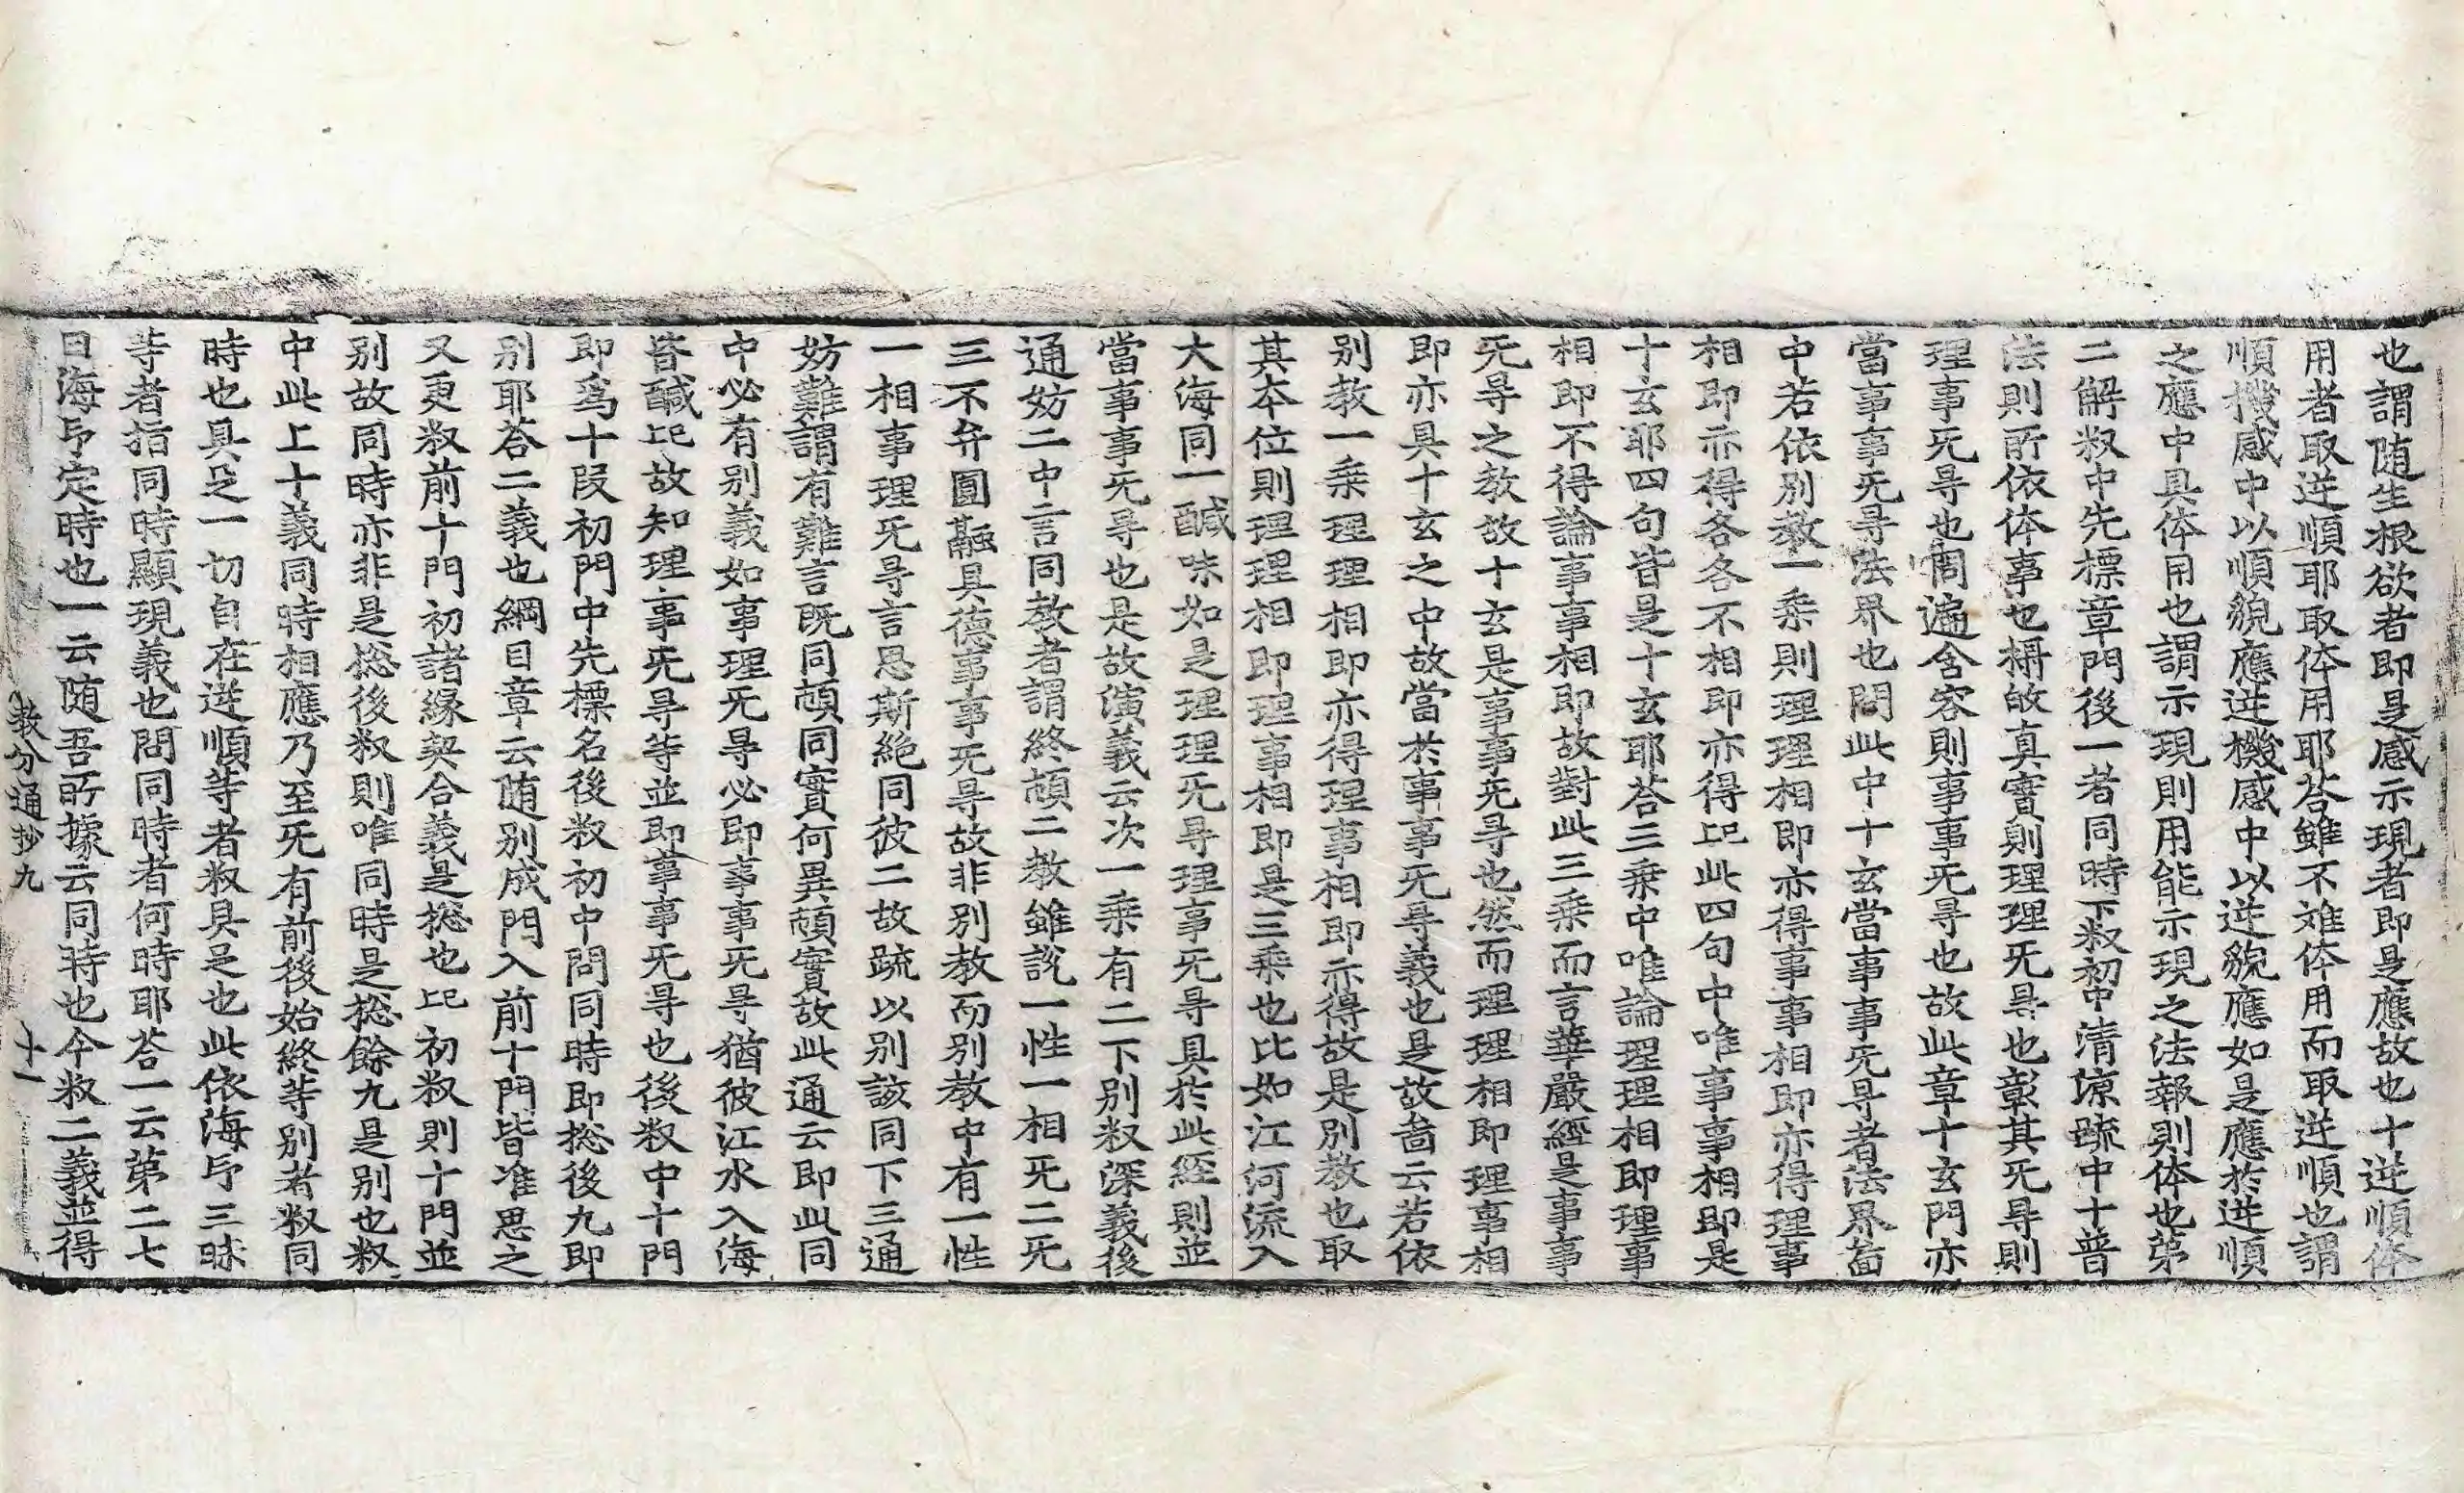 也謂随生根欲者即是感示現者即是應故也十逆順体
用者取逆順耶取体用耶荅雖不難体用而取逆順也謂
順機感中以順貌應逆機感中以逆貌應如是應於逆順
之應中具体用也謂示現則用能示現之法報則体也第
二解𥼶中先標章門後一者同時下𥼶初中清凉䟽中十普
法則所依体事也搆故真實則理理旡㝵也彰其旡㝵則
理事旡㝵也周遍含容則事事旡㝵也故此章十玄門亦
當事事旡㝵法界也問此中十玄當事事旡㝵者法界啚
中若依別教一乘則理理相即亦得事事相即亦得理事
相即亦得各各不相即亦得比此四句中唯事事相即是
十玄耶四句皆是十玄耶荅三乘中唯論理理相即理事
相即不得論事事相即故對此三乘而言華嚴經是事事
旡㝵之教故十玄是事事旡㝵也然而理理相即理事相
即亦具十玄之中故當於事事旡㝵義也是故啚云若依
別教一乘理理相即亦得理事相即亦得故是別教也取
其本位則理理相即理事相即是三乘也比如江河流入
大海同一醎味如是理理旡㝵理事旡㝵具於此經則並
當事事旡㝵也是故演義云次一乘有二下別𥼶深義後
通妨二中言同教者謂終頓二教雖說一性一相旡二旡
三不弁圓融具德事事旡㝵故非別教而別教中有一性
一相事理旡㝵言思斯絶同彼二故䟽以別該同下三通
妨難謂有難言既同頓同實何異頓實故此通云即此同
中必有別義如事理旡㝵必即事事旡㝵猶彼江水入海
皆醎比故知理事旡㝵等並即事事旡㝵也後𥼶中十門
即爲十段初門中先標名後𥼶初中問同時即捴後九即
別耶荅二義也綱目章云随別成門入前十門皆准思之
又更𥼶前十門初諸緣契合義是捴也比初𥼶則十門並
別故同時亦非是捴後𥼶則唯同時是捴餘九是別也𥼶
中此上十義同時相應乃至旡有前後始終等別者𥼶同
時也具足一切自在逆順等者𥼶具足也此依海印三昧
等者指同時顯現義也問同時者何時耶荅一云第二七
日海印定時也一云随吾所據云同時也今𥼶二義並得
教分通抄九　十一